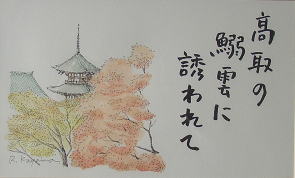 高取の
鰯雲に
誘われて
R. Kagawa